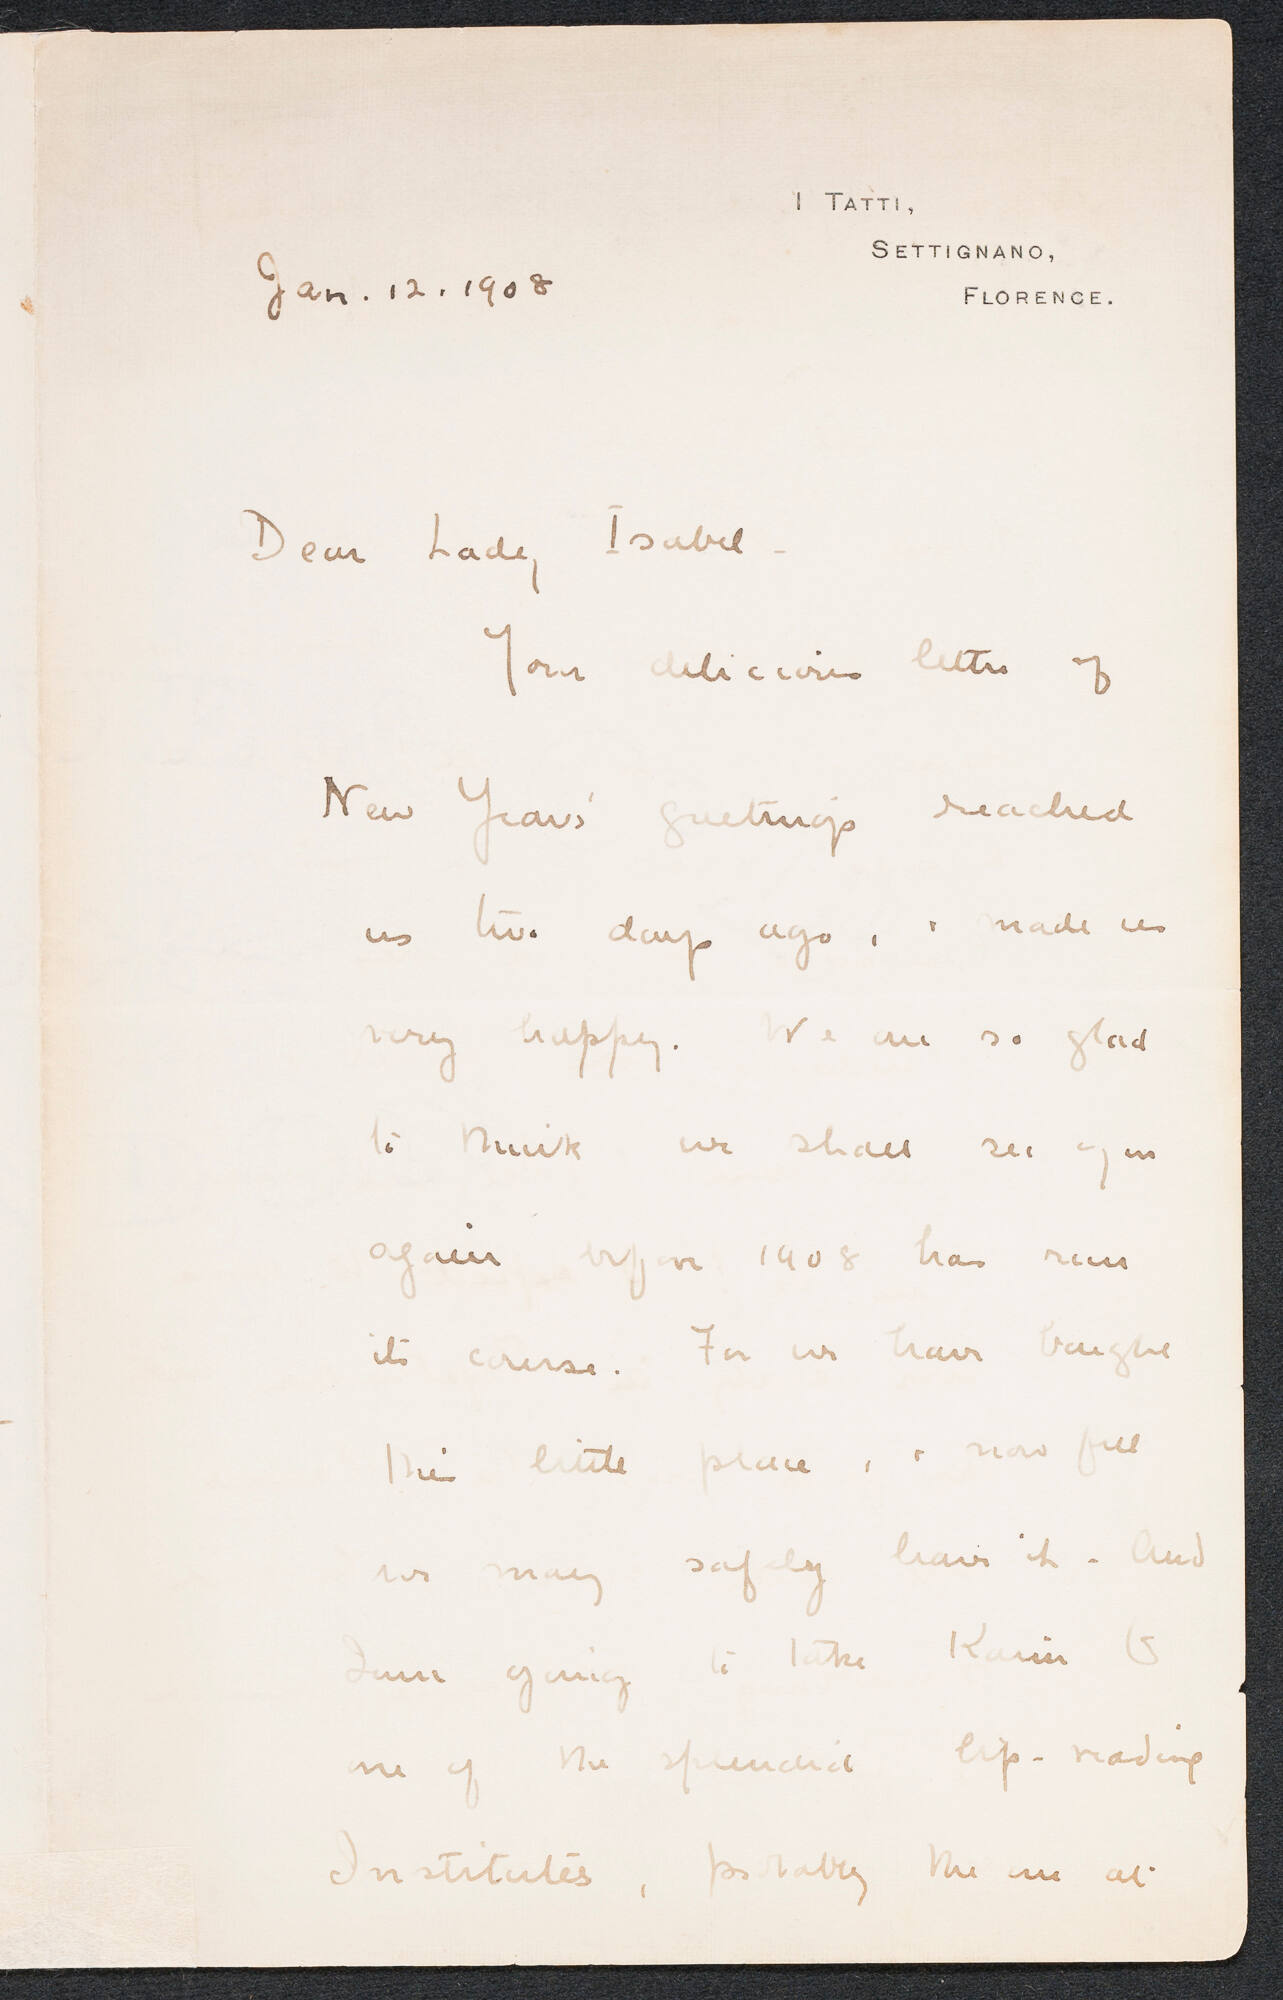 I Tatti,
Settignano,
Florence.
Jan. 12. 1908
Dear Lady Isabel -
Your delicious letter of
New Years' greetings reached
us two days ago, & made us
very happy. We are so glad
to think we shall see you
again before 1908 has run
its course. For we have bought
this little place, & now feel
we may safely leave it - And
I am going to take Karin to
one of the splendid lip-reading
Institutes, probably the one at